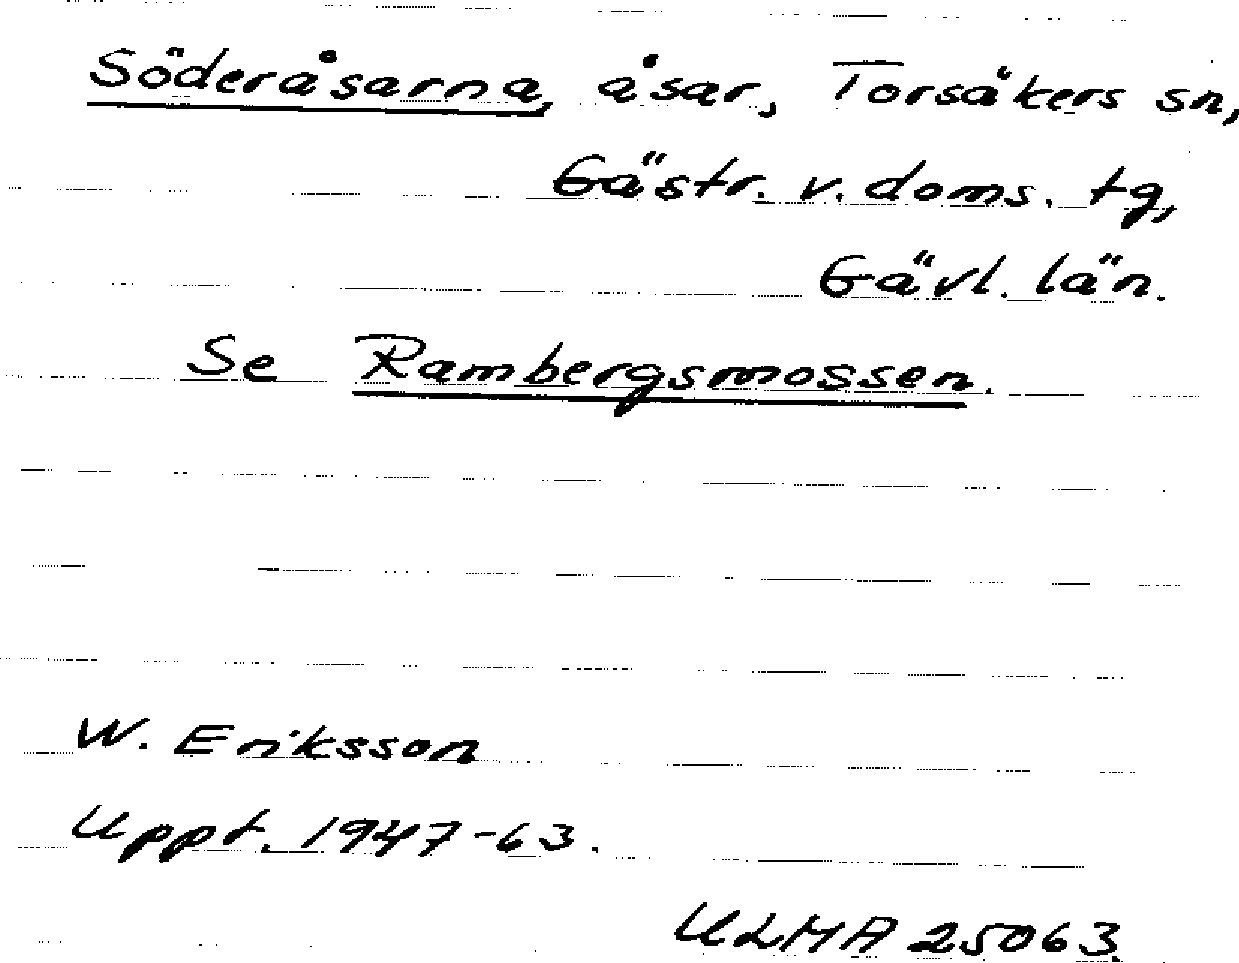 Söderåsarna, åsar, Torsåkers sn,
Gästr. v. doms. tg,
Gävl. län.
Se Rambergsmossen.
W. Eriksson
Uppt. 1947-63.
ULMA 25063.